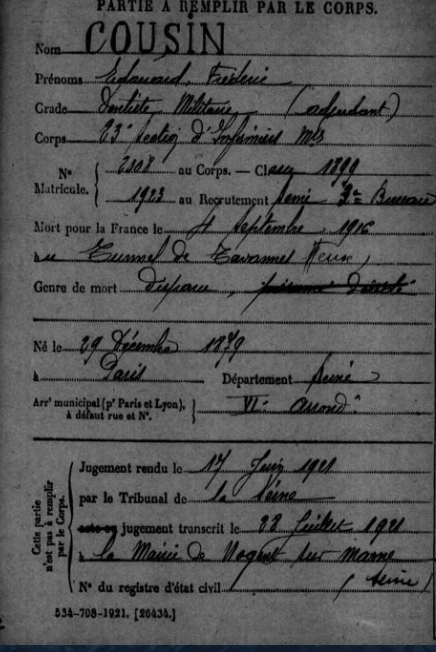 PARTIE À REMPLIR PAR LE CORPS.
Nom COUSIN
Prénoms Edouard, Frédéric
Grade Dentiste Militaire (adjudant)
Corps 23e Section d'Infirmiers Mres
N° Matricule. 2108 au Corps. — Classe 1899
1923 au Recrutement Seine 3e Bureau
Mort pour la France le 4 Septembre 1916
au Tunnel de Tavannes Meuse
Genre de mort disparu,
Né le 29 Décembre 1879
à Paris Département Seine
Arrt municipal (pr Paris et Lyon), à défaut rue et N°. VIe arrondt
Cette partie n'est pas à remplir par le Corps.
Jugement rendu le 17 Juin 1921
par le Tribunal de la Seine
acte ou jugement transcrit le 22 Juillet 1921
à la Mairie de Nogent sur Marne
N° du registre d'état civil (Seine)
534-708-1921. [26434.]